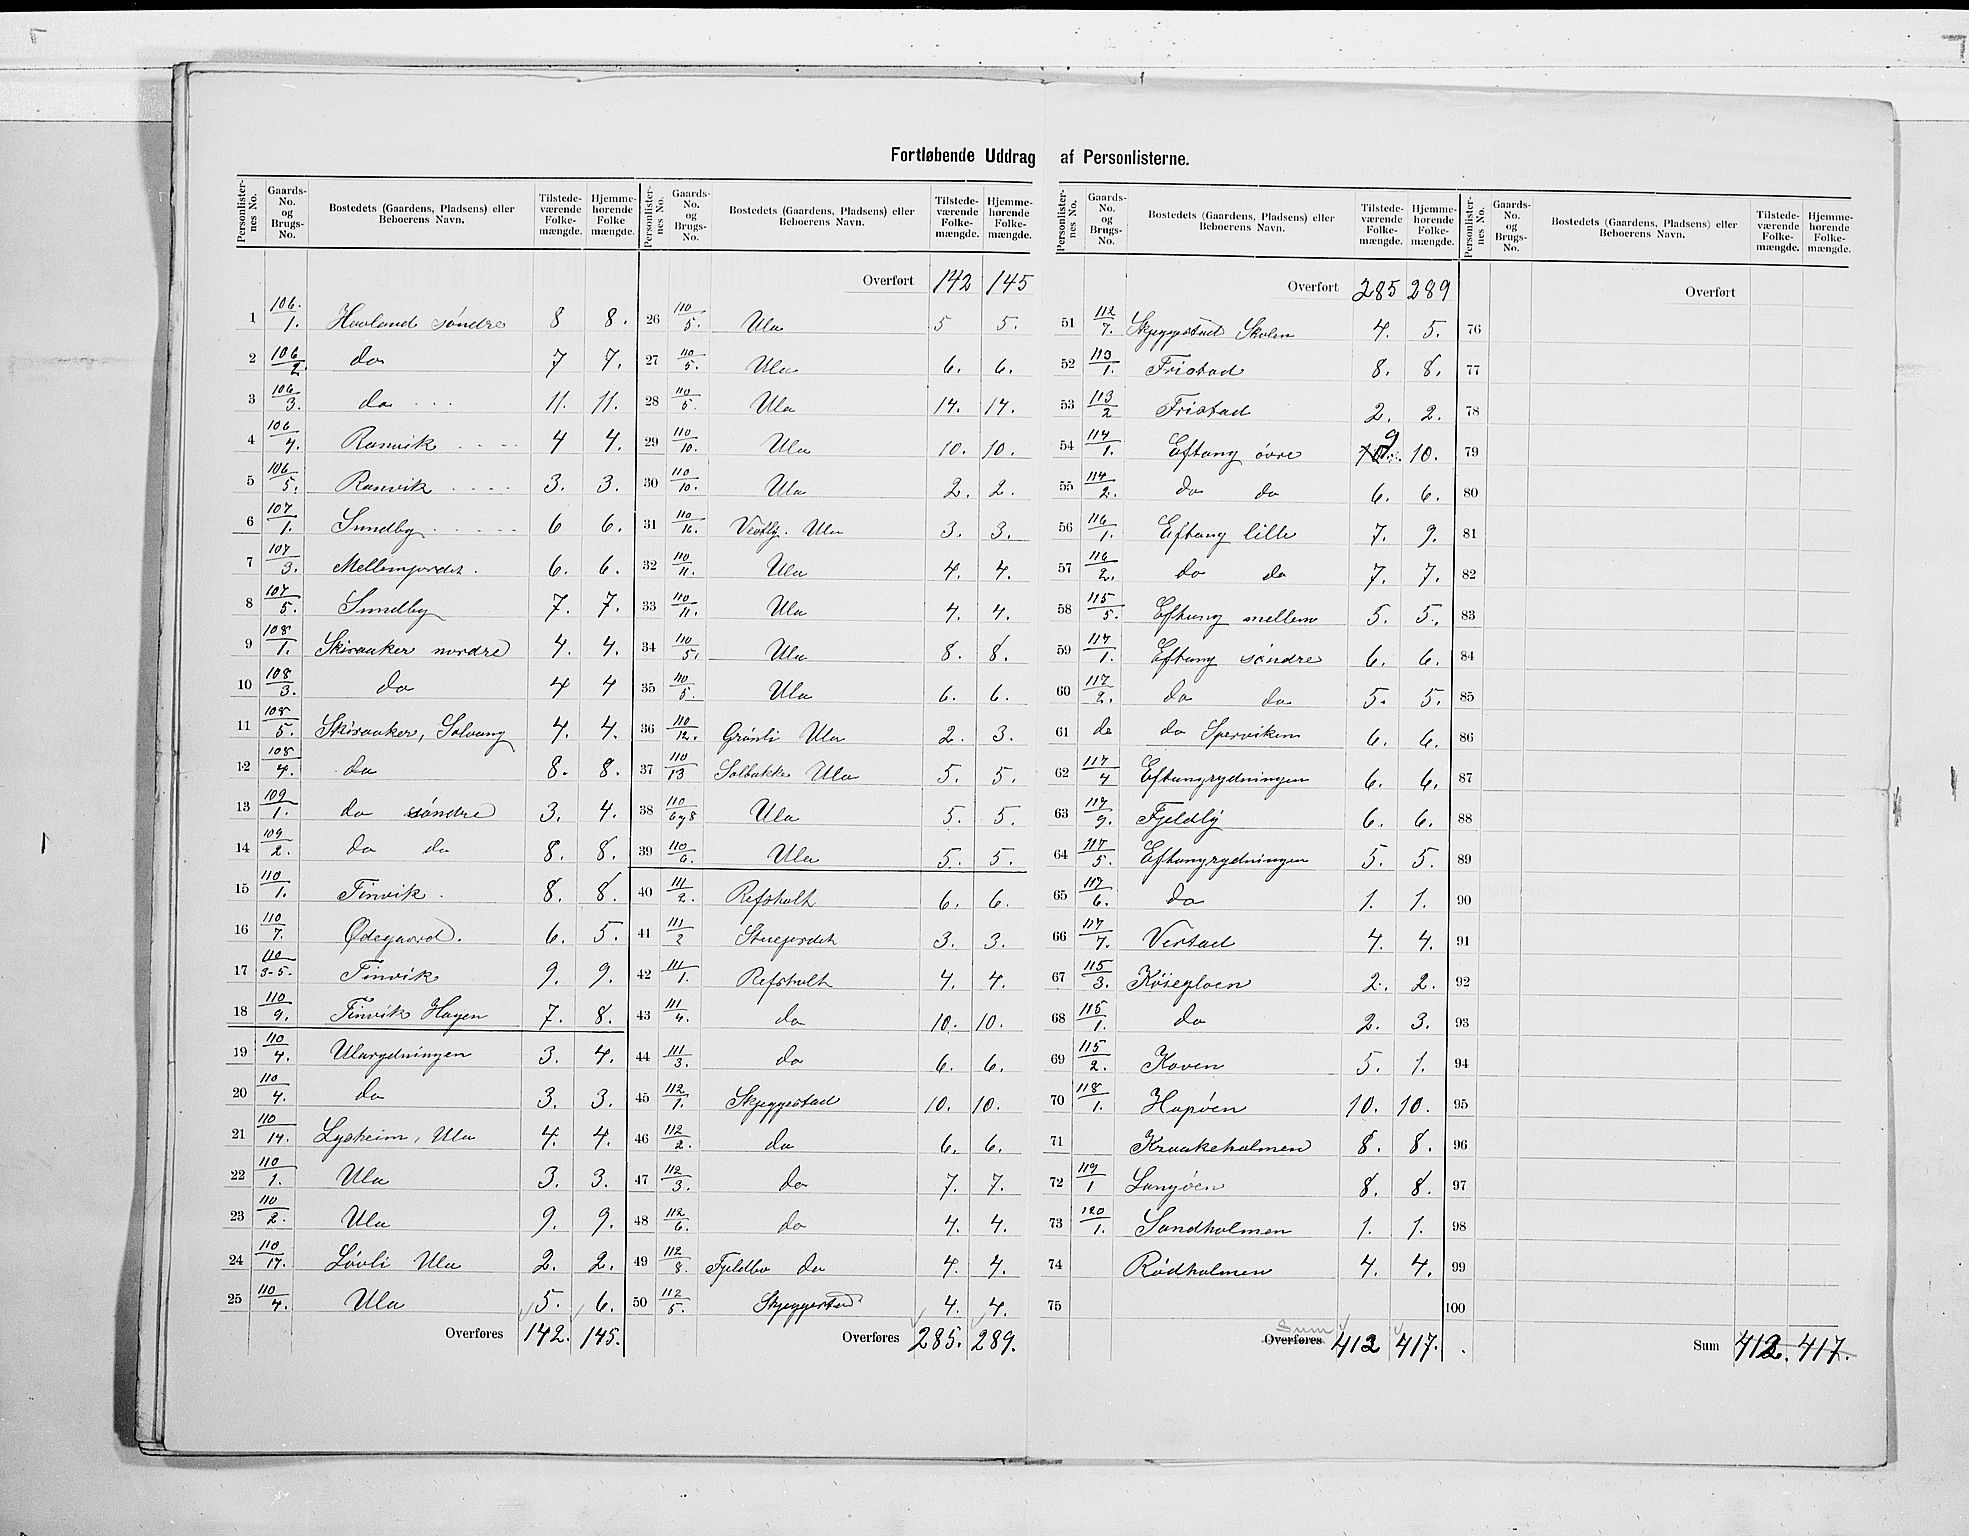 Fortløbende Uddrag af Personlisterne.
Personlister-nes No. | Gaards-No. og Brugs-No. | Bostedets (Gaardens, Pladsens) eller Beboerens Navn. | Tilstede-værende Folke-mængde. | Hjemme-hørende Folke mængde.
1 106/1. Havland søndre 8 8.
2 106/2 do 7 7.
3 106/3. do 11. 11.
4 106/4. Ranvik 4 4.
5 106/5. Ranvik 3. 3.
6 107/1. Sundby 6 6.
7 107/3. Mellemjordet. 6. 6.
8 107/5. Sundby 7. 7.
9 108/1. Skiraaker nordre 4. 4.
10 108/3. do 4 4
11 108/5. Skiraaker, Solvang 4. 4.
12 108/4. do 8. 8.
13 109/1. do søndre 3. 4.
14 109/2. do do 8. 8.
15 110/1. Tinvik. 8. 8.
16 110/7. Ødegaard. 6. 5.
17 110/3-5. Tinvik 9. 9.
18 110/9. Tinvik Hagen 7. 8.
19 110/4. Ularydningen 3. 4.
20 110/4. do 3. 3.
21 110/14. Lysheim, Ula 4. 4.
22 110/1. Ula 3. 3.
23 110/2. Ula 9. 9.
24 110/17. Løvli Ula 2. 2.
25 110/4. Ula 5. 6.
Overføres 142. 145.
Personlister-nes No. | Gaards-No. og Brugs-No. | Bostedets (Gaardens, Pladsens) eller Beboerens Navn. | Tilstede-værende Folke-mængde. | Hjemme-hørende Folke-mængde.
Overført 142 145
26 110/5. Ula 5 5.
27 110/5. Ula 6. 6.
28 110/5. Ula 14. 14.
29 110/10. Ula 10. 10.
30 110/10. Ula 2. 2.
31 110/16. Vestly. Ula 3. 3.
32 110/11. Ula 4. 4.
33 110/11. Ula 4. 4.
34 110/5. Ula 8. 8.
35 110/5. Ula 6. 6.
36 110/12. Grønli Ula 2. 3.
37 110/13 Solbakke Ula 5. 5.
38 110/6 og 8 Ula 5. 5.
39 110/6. Ula 5. 5.
40 111/2. Refsholt 6. 6.
41 111/2 Stuejordet 3. 3.
42 111/1. Refsholt 4. 4.
43 111/4. do 10. 10.
44 111/3. do 6. 6.
45 112/1. Skjeggestad 10. 10.
46 112/2. do 6. 6.
47 112/3. do 7. 7.
48 112/6. do 4. 4.
49 112/8. Fjeldbo do 4. 4.
50 112/5. Skjeggestad 4. 4.
Overføres 285. 289.
Personlister-nes No. | Gaards-No. og Brugs-No. | Bostedets (Gaardens, Pladsens) eller Beboerens Navn. | Tilstede-værende Folke-mængde. | Hjemme-hørende Folke-mængde.
Overført 285 289
51 112/7. Skjeggestad Skolen 4. 5.
52 113/1. Fristad 8. 8.
53 113/2 Fristad 2. 2.
54 114/1. Eftang øvre 10. 9 10.
55 114/2. do do 6. 6.
56 116/1. Eftang lille 7. 9.
57 116/2. do do 7. 7.
58 115/5. Eftang mellem 5. 5.
59 117/1. Eftang søndre 6. 6.
60 117/2. do do 5. 5.
61 do do Sperviken 6. 6.
62 117/4 Eftangrydningen 6. 6.
63 117/9. Fjeldly 6. 6.
64 117/5. Eftangrydningen 5. 5.
65 117/6. do 1. 1.
66 117/7. Verstad 4. 4.
67 115/3. 2. 2.
68 115/1. do 2. 3.
69 115/2. Koven 5. 1.
70 118/1. Hapøen 10. 10.
71 Kraakeholmen 8. 8.
72 119/1 Langøen 8. 8.
73 120/1. Sandholmen 1. 1.
74 Rødholmen 4. 4.
75
Overføres Sum 412 417.
Personlister-nes No. | Gaards-No. og Brugs-No. | Bostedets (Gaardens, Pladsens) eller Beboerens Navn. | Tilstede-værende Folke-mængde. | Hjemme-hørende Folke-mængde.
Overført
76
77
78
79
80
81
82
83
84
85
86
87
88
89
90
91
92
93
94
95
96
97
98
99
100
Sum 412. 417.